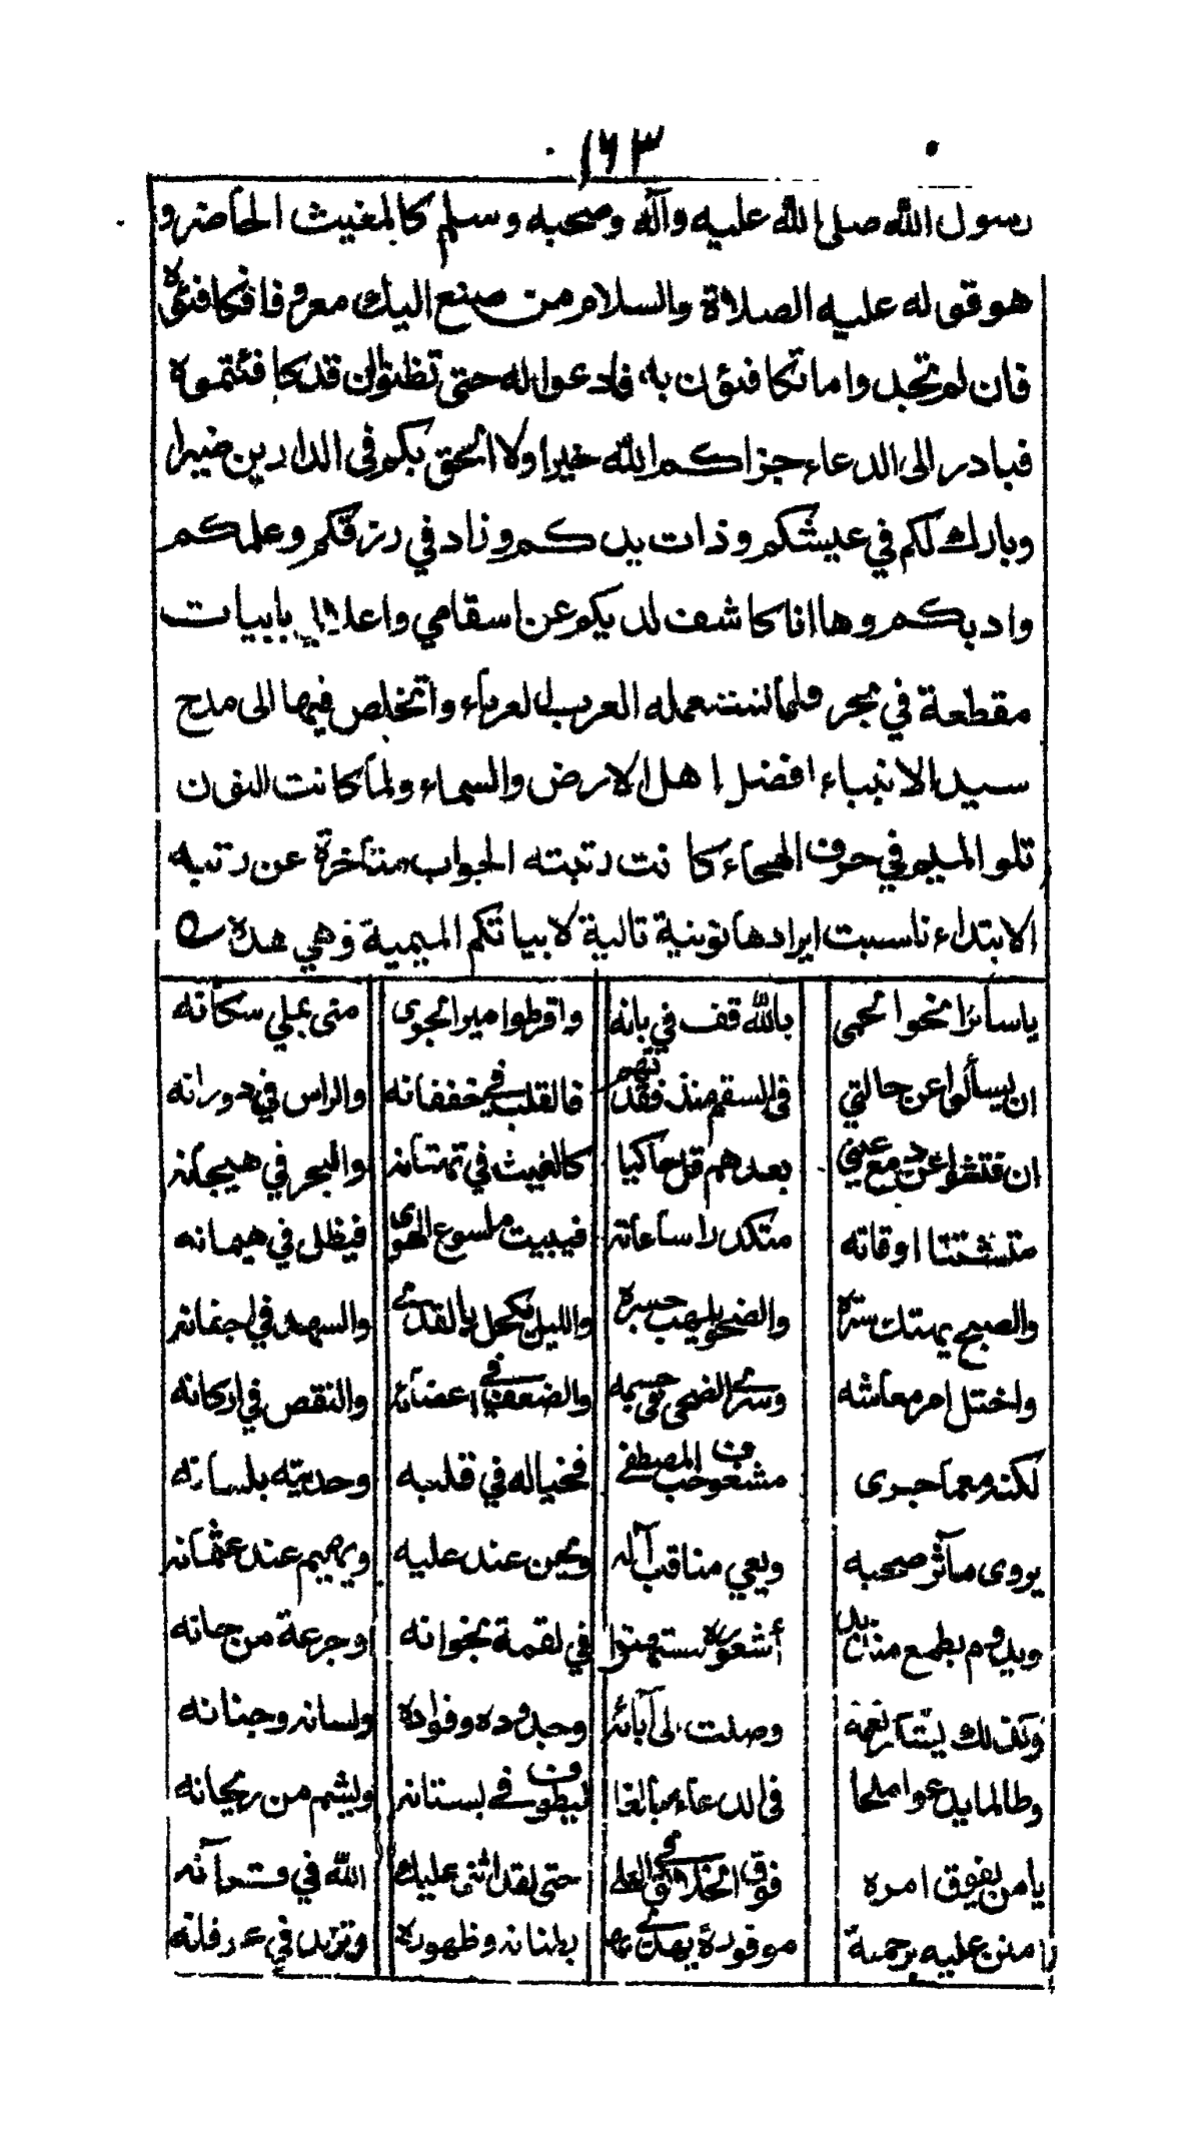 ١٦٣
رسول الله صلى الله عليه وآله وصحبه وسلم كالمغيث الحاضر و
هو قوله عليه الصلاة والسلام من صنع اليك معروفا فكافئوه
فان لم تجدوا ما تكافئون به فادعوا له حتى تظنوا ان قد كافئتموه
فبادر الى الدعاء جزاكم الله خيرا ولا الحق بكم في الدارين ضيرا
وبارك لكم في عيشكم وذات يدكم وزاد في رزقكم وعلمكم
وادبكم وها انا كاشف لديكم عن اسقامي واعلالي بابيات
مقطعة في بحر قلما تستعمله العرب العرباء واتخلص فيها الى مدح
سيد الانبياء افضل اهل الارض والسماء ولما كانت النون
تلو الميم في حرف الهجاء كما نت رتبته الجواب متأخرة عن رتبه
الابتداء ناسبت ايرادها نونية تالية لابياتكم الميمية وهي هذه
ياسائرا نحوا الحمى بالله قف في بانه واقرطوا مير الجوى منى على سكانه
ان يسألوا عن حالتي في السقم منذ فقدتهم فالقلب في خفقانه والراس في دورانه
ان فتشوا عن دمع عيني بعدهم قل حاكيا كالغيث في تهتانه والبحر في هيجانه
متشتتا اوقاته متكدرا ساعاته فيبيت ملسوع الهوى فيظل في هيمانه
والصبح يهتك ستره والضحو يلهب حسرة والليل يكحل بالقذى والسهد في اجفانه
واختل امر معاشه وسرى الضنى في جسمه والضعف في اعضائه والنقص في اركانه
لكنه مما جرى مشغوف حب المصطفى فخياله في قلبه وحديثه بلسانه
يروى مآثر صحبه ويعي مناقب آله ويحن عند عليه ويهيم عند عثمانه
في لقمة بخوانه اوجرعة من جانه
وصلت الى آبائه وجدوده وفواده ولسانه وجنانه
وطالما يدعو ملحا في الدعاء مبالغا ليطوف في بستانه وليشم من ريحانه
يامن يفوق امره فوق الخلائق في العلى حتى لقد اثنى عليك الله في قرآنه
امنن عليه برحمة موفورة بطنانه وظهوره وتزيد في عرفانه